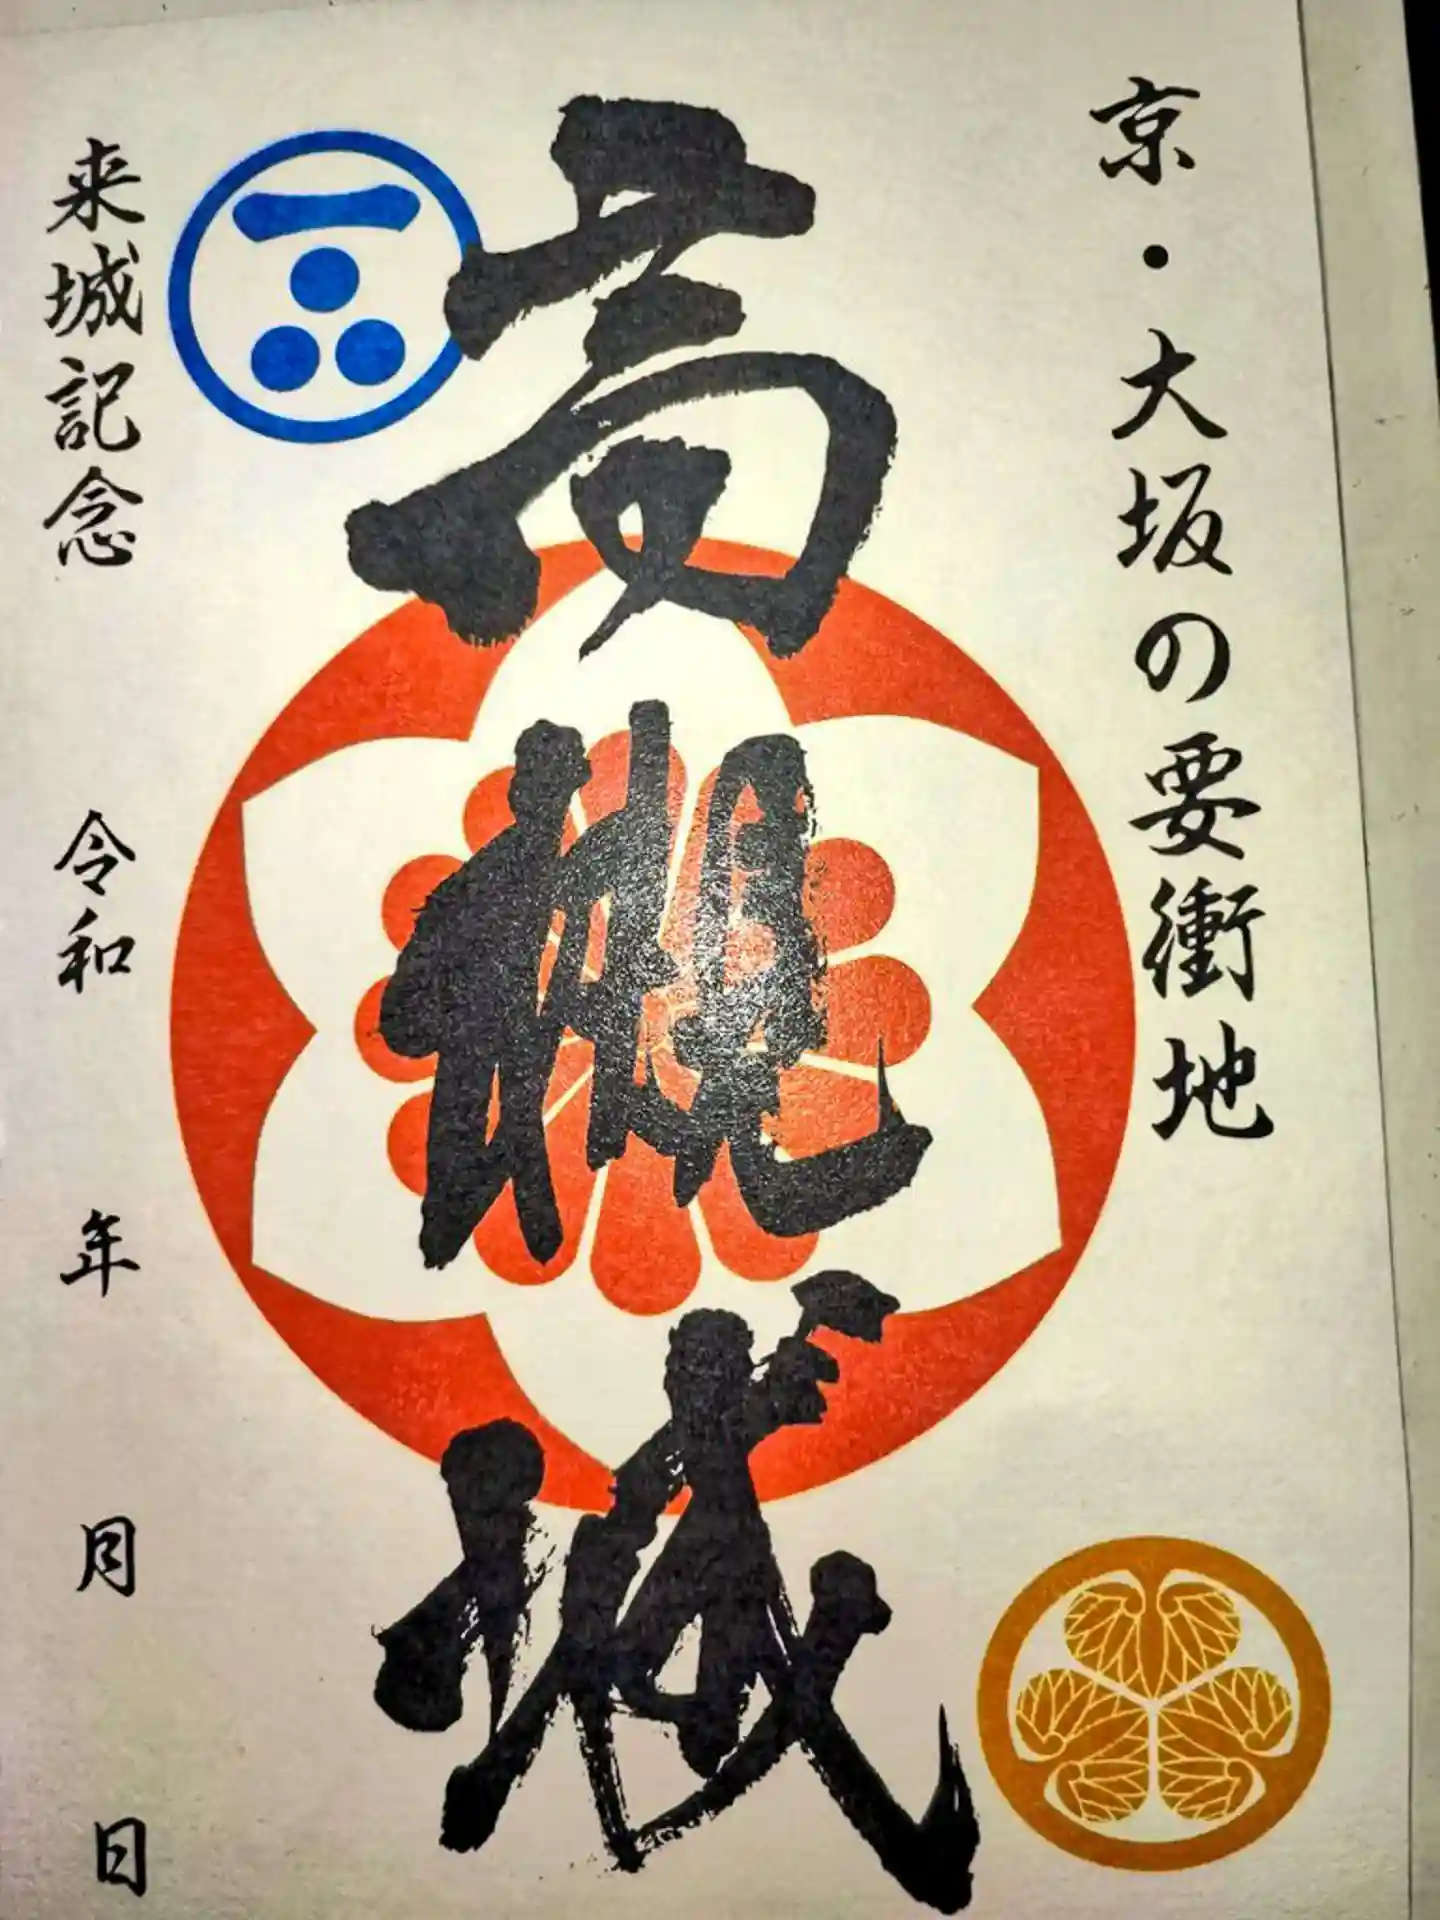 京・大坂の要衝地
高槻城
来城記念 令和 年 月 日